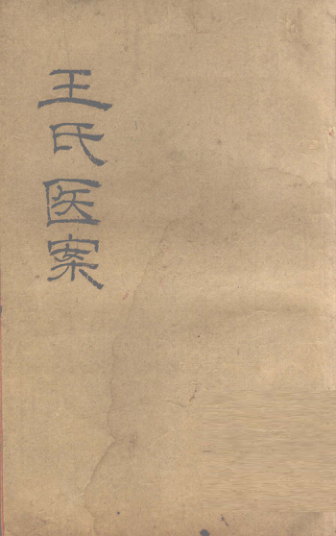 王氏医案